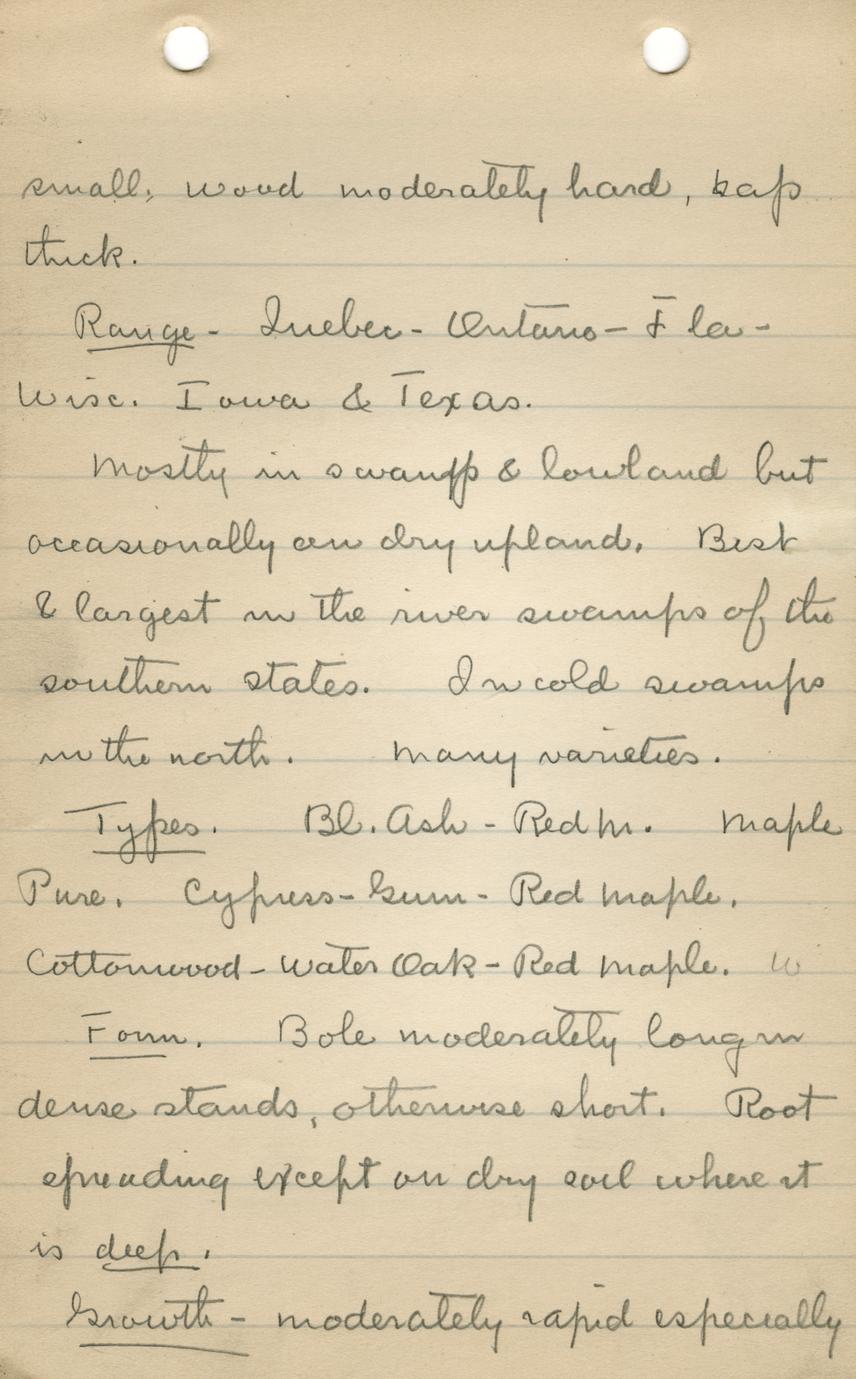 small; wood moderately hard, sap
thick.
Range - Quebec - Ontario - Fla -
Wisc. Iowa & Texas.
Mostly in swamp & lowland but
occasionally on dry upland. Best
& largest in the river swamps of the
southern states. In cold swamps
in the north. Many varieties.
Types. Bl. Ash - Red M. Maple
Pure. Cypress - Gum - Red Maple.
Cottonwood - Water Oak - Red Maple. W
Form. Bole moderately long in
dense stands, otherwise short. Root
spreading except on dry soil where it
is deep.
Growth - moderately rapid especially